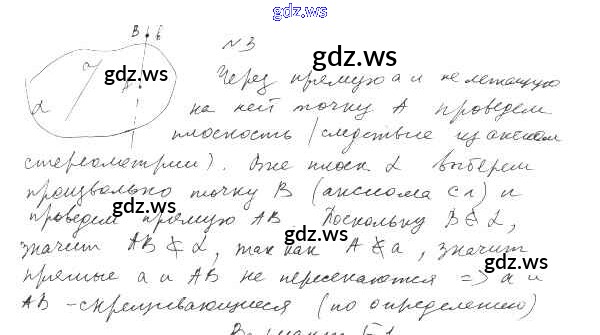 gdz.ws
B b
N 3
gdz.ws
gdz.ws
a
α
A
Через прямую a и не лежащую
на ней точку A проведем
плоскость (следствие из аксиом
стереометрии). Вне плоск α выберем
произвольно точку B (аксиома C1) и
gdz.ws
проведем прямую AB Поскольку B ∉ α,
значит AB ⊄ α, так как A ∉ a, значит
gdz.ws
прямые a и AB не пересекаются => a и
AB - скрещивающиеся (по определению)
Вариант Б1